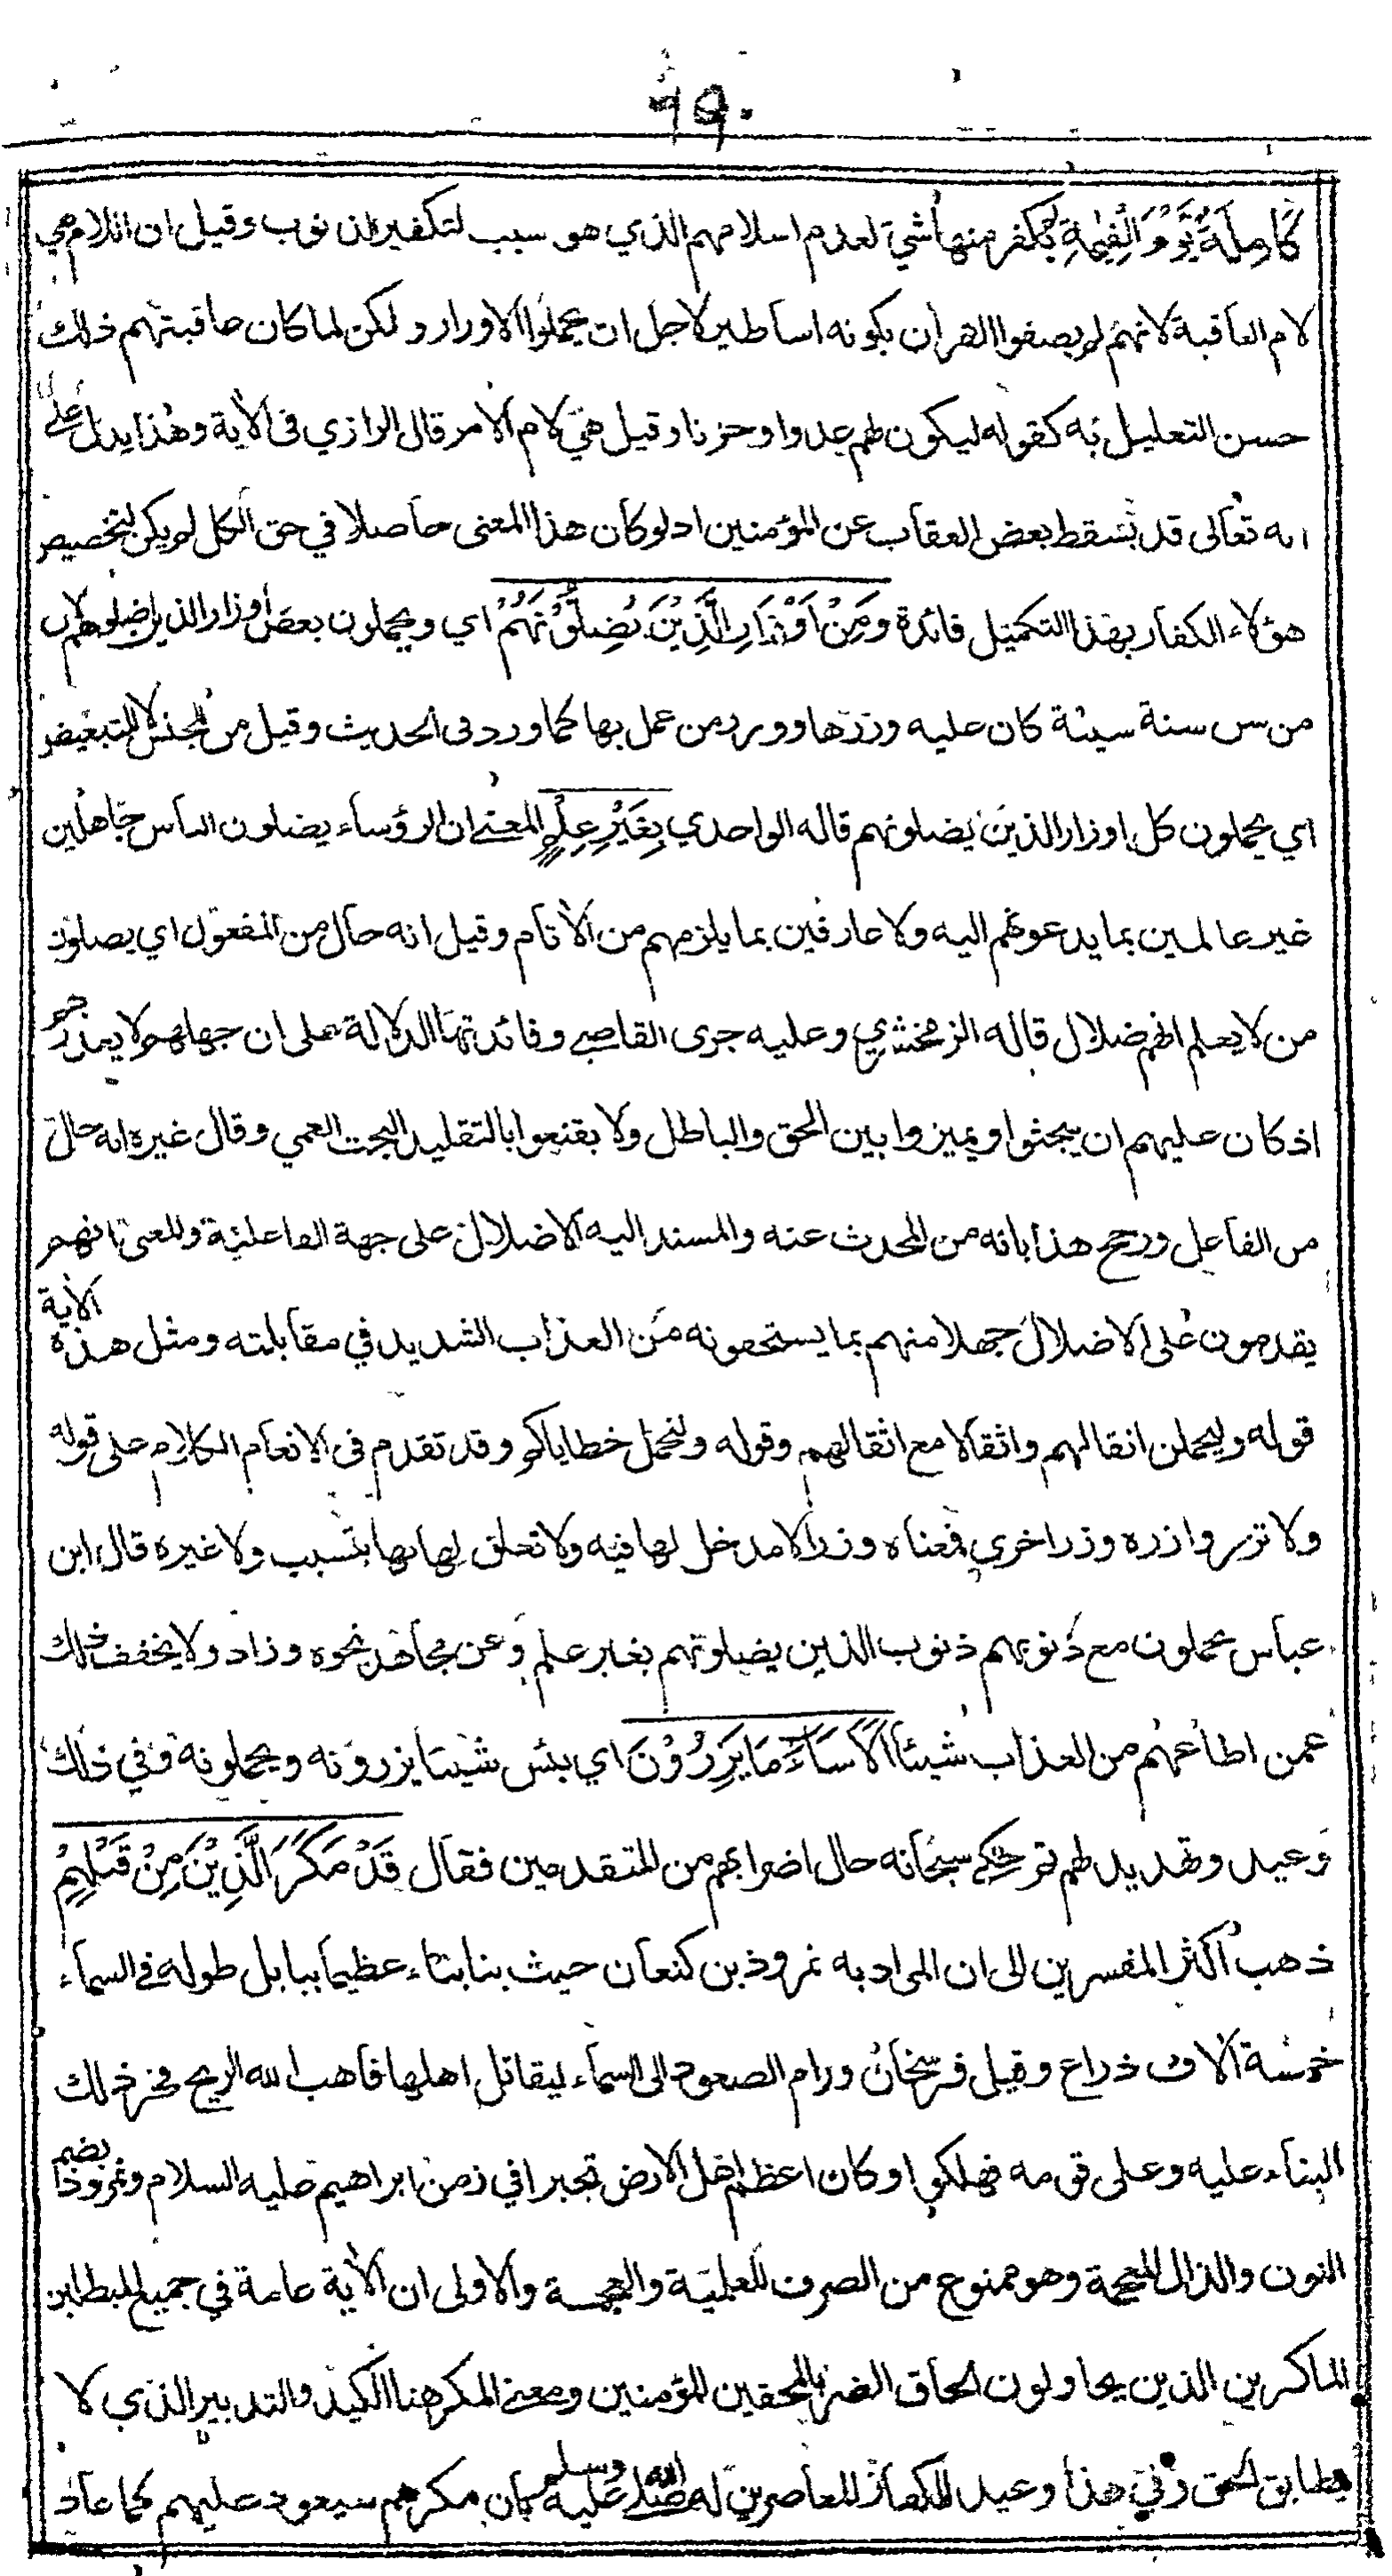 ٦٩٠
كَامِلَةً يَّوْمَ الْقِيٰمَةِ لم يكفر منها شيء لعدم اسلامهم الذي هو سبب لتكفير الذنوب وقيل ان اللام هي
لام العاقبة لانهم لم يصفوا القرآن بكونه اساطير لاجل ان يحملوا الاوزار ولكن لما كان عاقبتهم ذلك
حسن التعليل به كقوله ليكون لهم عدوا وحزنا وقيل هي لام الامر قال الرازي في الآية وهذا يدل على
انه تعالى قد يسقط بعض العقاب عن المؤمنين اذ لو كان هذا المعنى حاصلا في حق الكل لم يكن لتخصيص
هؤلاء الكفار بهذا التكميل فائدة وَمِنْ اَوْزَارِ الَّذِيْنَ يُضِلُّوْنَهُمْ اي ويحملون بعض اوزار الذين اضلوهم لان
من سن سنة سيئة كان عليه وزرها ووزر من عمل بها كما ورد في الحديث وقيل من للجنس لا للتبعيض
اي يحملون كل اوزار الذين يضلونهم قاله الواحدي بِغَيْرِ عِلْمٍ المعنى ان الرؤساء يضلون الناس جاهلين
غير عالمين بما يدعونهم اليه ولا عارفين بما يلزمهم من الآثام وقيل انه حال من المفعول اي يضلون
من لا يعلم انهم ضلال قاله الزمخشري وعليه جرى القاضي وفائدتها الدلالة على ان جهلهم لا يعذرهم
اذ كان عليهم ان يبحثوا ويميزوا بين الحق والباطل ولا يقنعوا بالتقليد البحت العمي وقال غيره انه حال
من الفاعل ورجح هذا بانه من المحدث عنه والمسند اليه الاضلال على جهة الفاعلية والمعنى انهم
يقدمون على الاضلال جهلا منهم بما يستحقونه من العذاب الشديد في مقابلته ومثل هذه الآية
قوله وليحملن اثقالهم واثقالا مع اثقالهم وقوله ولنحمل خطاياكم وقد تقدم في الانعام الكلام على قوله
ولا تزر وازرة وزر اخرى فمعناه وزرا لا مدخل لها فيه ولا تعلق لها بها بتسبب ولا غيره قال ابن
عباس يحملون مع ذنوبهم ذنوب الذين يضلونهم بغير علم وعن مجاهد نحوه وزاد ولا يخفف ذلك
عمن اطاعهم من العذاب شيئا اَلَا سَاءَ مَا يَزِرُوْنَ اي بئس شيئا يزرونه ويحملونه وفي ذلك
وعيد وتهديد لهم ثم حكى سبحانه حال اضرابهم من المتقدمين فقال قَدْ مَكَرَ الَّذِيْنَ مِنْ قَبْلِهِمْ
ذهب اكثر المفسرين الى ان المراد به نمروذ بن كنعان حيث بنا بناء عظيما ببابل طوله في السماء
خمسة آلاف ذراع وقيل فرسخان ورام الصعود الى السماء ليقاتل اهلها فاهب الله الريح فخر ذلك
البناء عليه وعلى قومه فهلكوا وكان اعظم اهل الارض تجبرا في زمن ابراهيم عليه السلام ونمروذ بضم
النون والذال المعجمة وهو ممنوع من الصرف للعلمية والعجمة والاولى ان الآية عامة في جميع المبطلين
الماكرين الذين يحاولون الحاق الضر بالمحقين المؤمنين ومعنى المكر هنا الكيد والتدبير الذي لا
يطابق الحق وفي هذا وعيد للكفار المعاصرين له صلى الله عليه وسلم بان مكرهم سيعود عليهم كما عاد